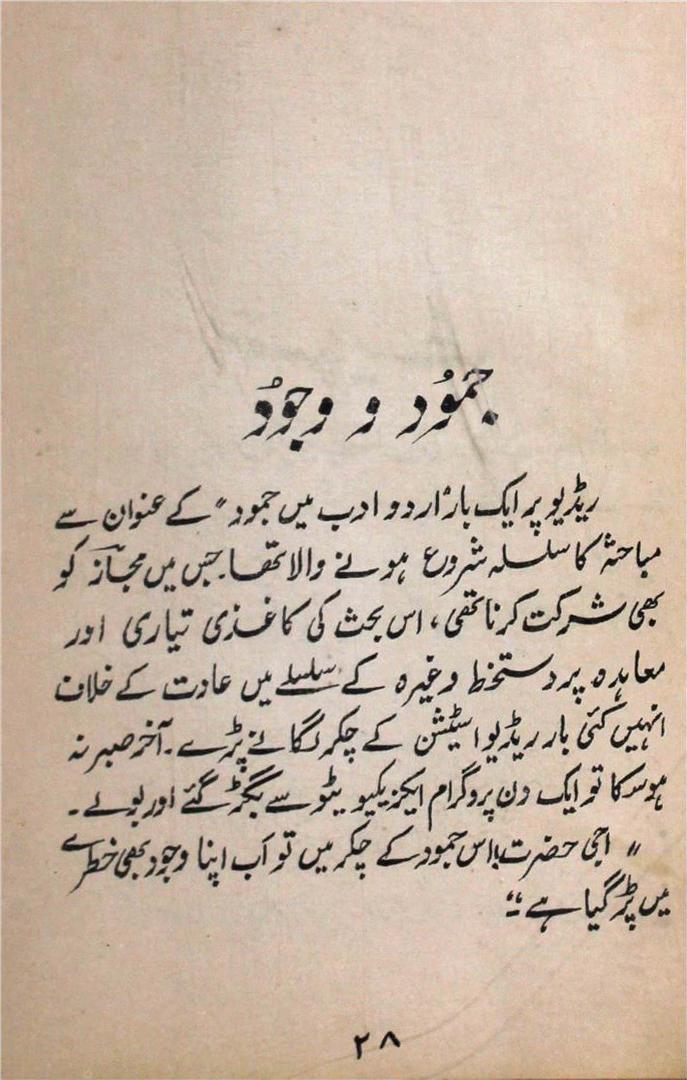 جمُود و وجوُد
ریڈیو پر ایک بار "اردو ادب میں جمود" کے عنوان سے
مباحثہ کا سلسلہ شروع ہونے والا تھا۔ جس میں مجاز کو
بھی شرکت کرنا تھی، اس بحث کی کاغذی تیاری اور
معاہدہ پر دستخط وغیرہ کے سلسلے میں عادت کے خلاف
انہیں کئی بار ریڈیو اسٹیشن کے چکر لگانے پڑے۔ آخر صبر نہ
ہوسکا تو ایک دن پروگرام ایکزیکیوٹیو سے بگڑ گئے اور بولے۔
"اجی حضرت! اس جمود کے چکر میں تو اب اپنا وجود بھی خطرے
میں پڑ گیا ہے"
۲۸